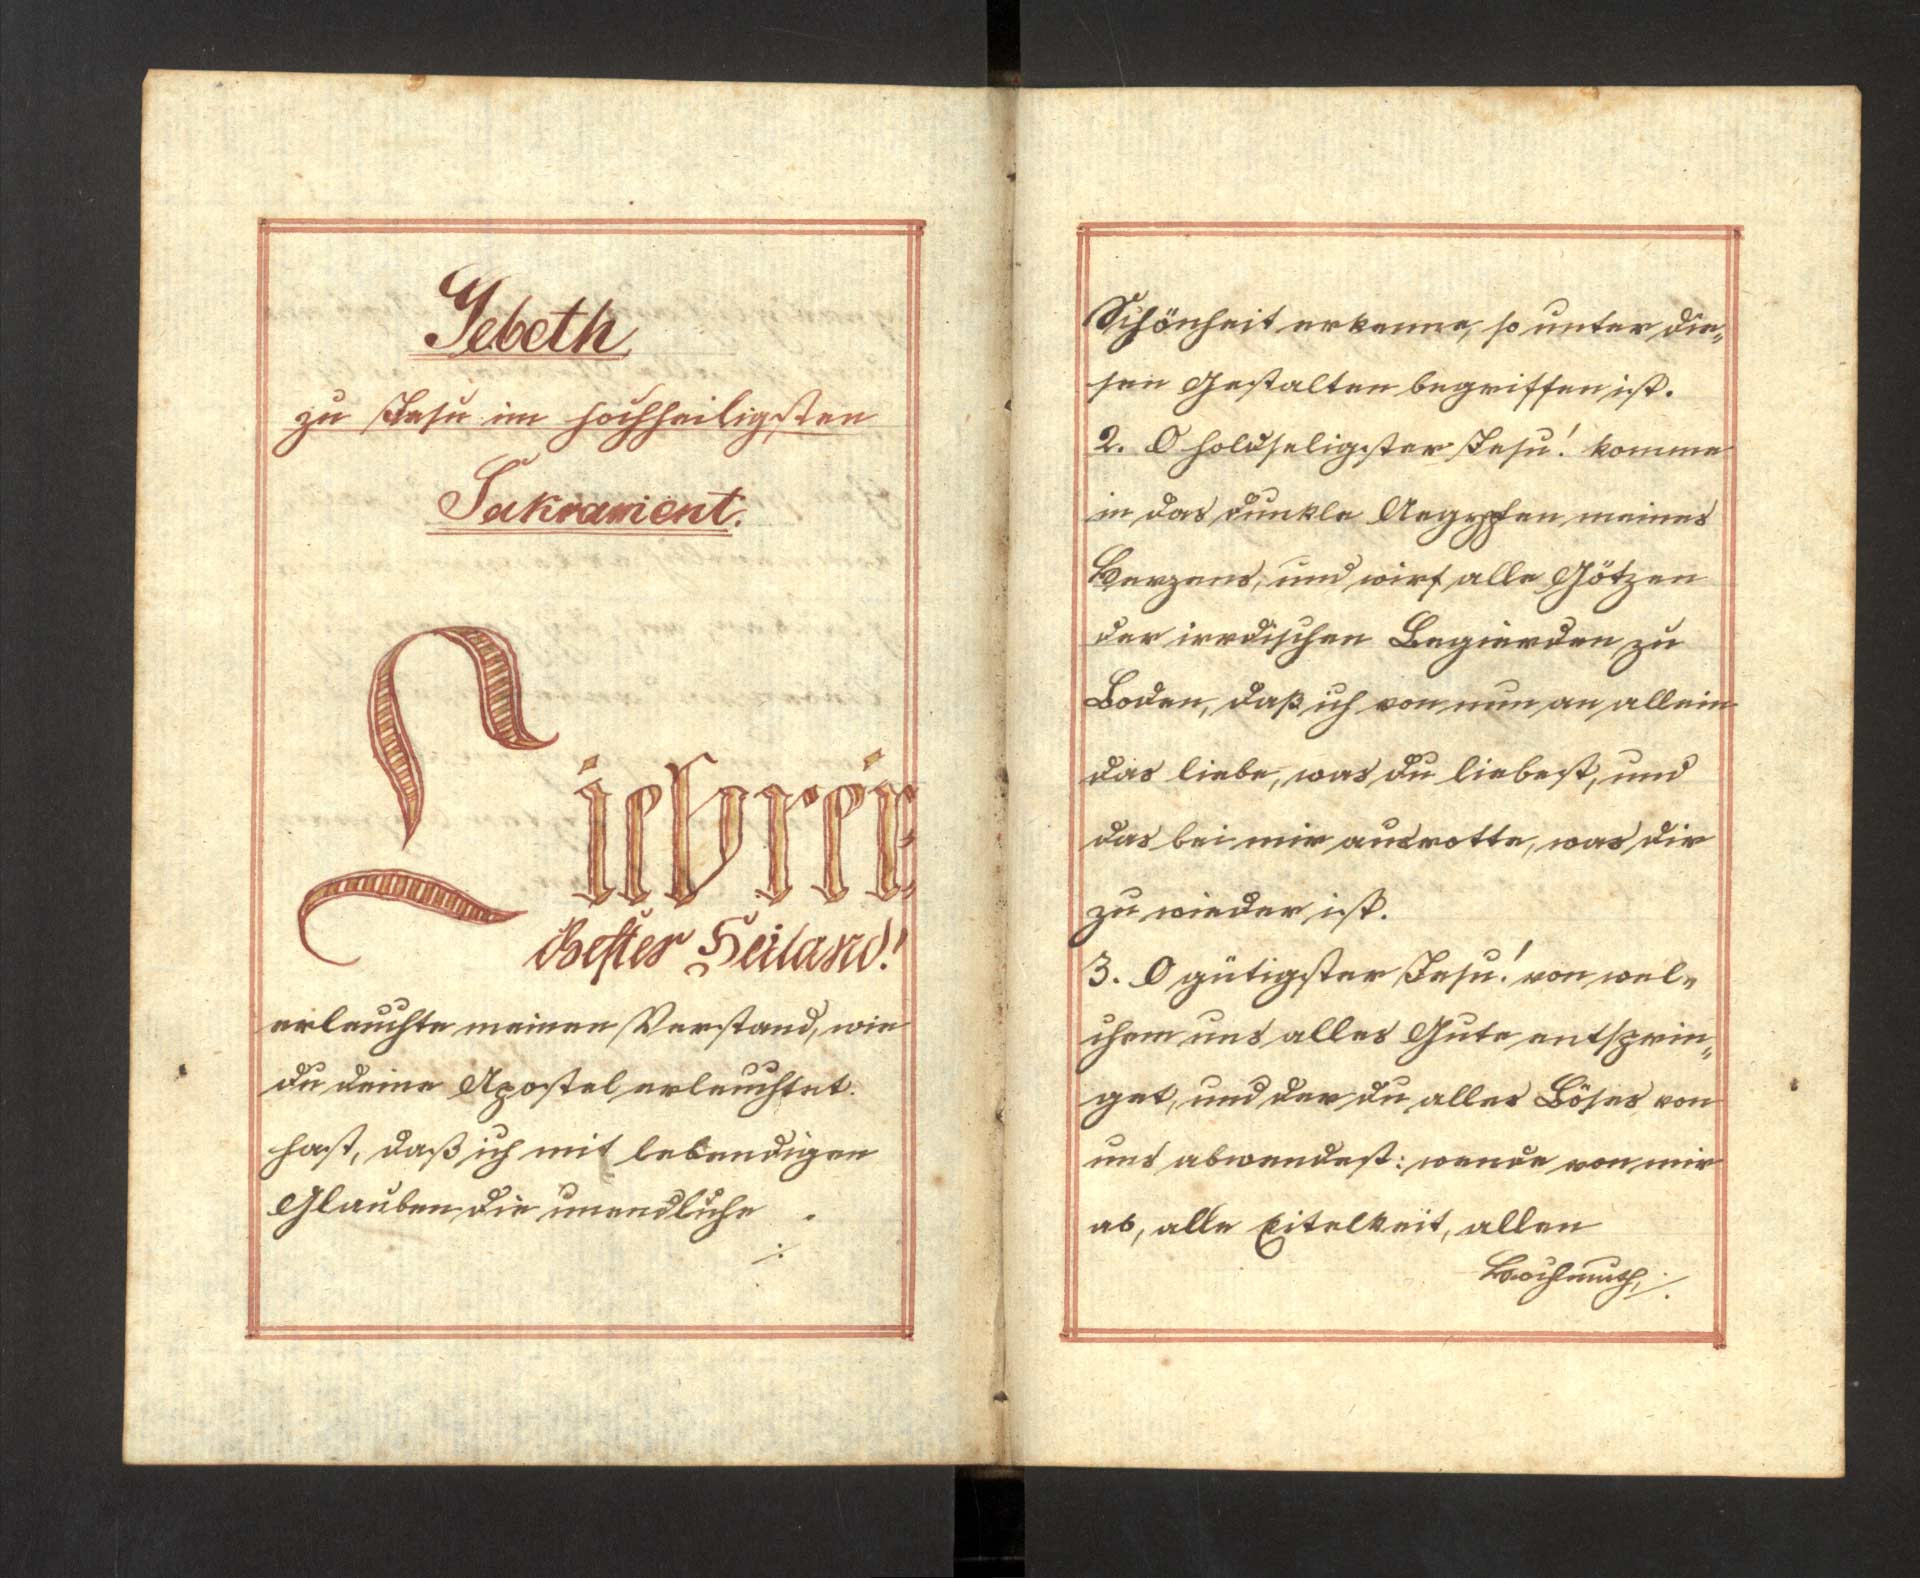 Gebeth
zu Jesu im hochheiligsten
Sakrament.
Liebrei-
chester Heiland!
erleuchte meinen Verstand, wie
du deine Apostel erleuchtet
hast, daß ich mit lebendigen
Glauben die unendliche
Schönheit erkenne, so unter die„
sen Gestalten begriffen ist.
2. O holdseligster Jesu! komme
in das dunkle Aegypten meines
Herzens, und wirf alle Götzen
der irrdischen Begierden zu
Boden, daß ich von nun an allein
das liebe, was du liebest, und
das bei mir ausrotte, was dir
zu wieder ist.
3. O gütigster Jesu! von wel„
chem uns alles Gute entsprin„
get, und der du alles Böses von
uns abwendest: wende von mir
ab, alle Eitelkeit, allen
Hochmuth, ./.